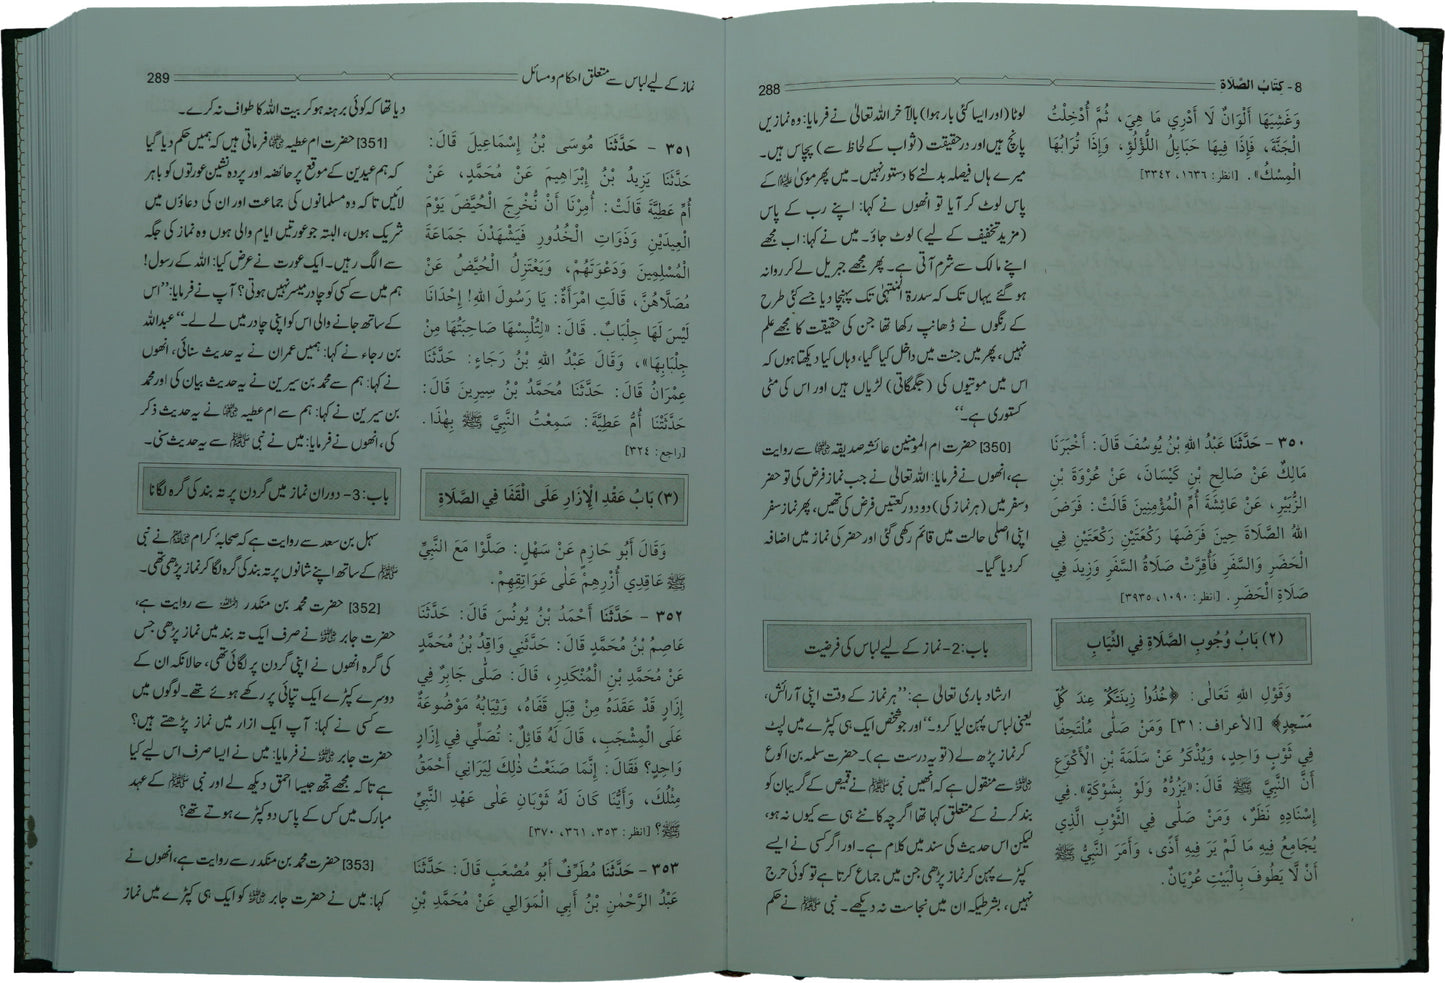 8- كِتَابُ الصَّلَاة
288
وَغَشِيَهَا أَلْوَانٌ لَا أَدْرِي مَا هِيَ، ثُمَّ أُدْخِلْتُ
الْجَنَّةَ، فَإِذَا فِيهَا حَبَايِلُ اللُّؤْلُؤِ، وَإِذَا تُرَابُهَا
الْمِسْكُ». [انظر: ١٦٣٦، ٣٣٤٢]
٣٥٠ - حَدَّثَنَا عَبْدُ اللهِ بْنُ يُوسُفَ قَالَ: أَخْبَرَنَا
مَالِكٌ عَنْ صَالِحِ بْنِ كَيْسَانَ، عَنْ عُرْوَةَ بْنِ
الزُّبَيْرِ، عَنْ عَائِشَةَ أُمِّ الْمُؤْمِنِينَ قَالَتْ: فَرَضَ
اللهُ الصَّلَاةَ حِينَ فَرَضَهَا رَكْعَتَيْنِ رَكْعَتَيْنِ فِي
الْحَضَرِ وَالسَّفَرِ فَأُقِرَّتْ صَلَاةُ السَّفَرِ وَزِيدَ فِي
صَلَاةِ الْحَضَرِ. [انظر: ١٠٩٠، ٣٩٣٥]
(٢) بَابُ وُجُوبِ الصَّلَاةِ فِي الثِّيَابِ
وَقَوْلِ اللهِ تَعَالٰى: ﴿خُذُواْ زِينَتَكُمْ عِندَ كُلِّ
مَسْجِدٍ﴾ [الأعراف: ٣١] وَمَنْ صَلّٰى مُلْتَحِفًا
فِي ثَوْبٍ وَاحِدٍ، وَيُذْكَرُ عَنْ سَلَمَةَ بْنِ الْأَكْوَعِ
أَنَّ النَّبِيَّ ﷺ قَالَ: «يَزُرُّهُ وَلَوْ بِشَوْكَةٍ». فِي
إِسْنَادِهِ نَظَرٌ، وَمَنْ صَلّٰى فِي الثَّوْبِ الَّذِي
يُجَامِعُ فِيهِ مَا لَمْ يَرَ فِيهِ أَذًى، وَأَمَرَ النَّبِيُّ ﷺ
أَنْ لَّا يَطُوفَ بِالْبَيْتِ عُرْيَانٌ.
لوٹا (اور ایسا کئی بار ہوا) بالآخر اللہ تعالیٰ نے فرمایا: وہ نمازیں
پانچ ہیں اور درحقیقت (ثواب کے لحاظ سے) پچاس ہیں۔
میرے ہاں فیصلہ بدلنے کا دستور نہیں۔ میں پھر موسیٰ علیہ السلام کے
پاس لوٹ کر آیا تو انھوں نے کہا: اپنے رب کے پاس
(مزید تخفیف کے لیے) لوٹ جاؤ۔ میں نے کہا: اب مجھے
اپنے مالک سے شرم آتی ہے۔ پھر مجھے جبریل لے کر روانہ
ہو گئے یہاں تک کہ سدرۃ المنتہیٰ تک پہنچا دیا جسے کئی طرح
کے رنگوں نے ڈھانپ رکھا تھا جن کی حقیقت کا مجھے علم
نہیں، پھر میں جنت میں داخل کیا گیا، وہاں کیا دیکھتا ہوں کہ
اس میں موتیوں کی (جگمگاتی) لڑیاں ہیں اور اس کی مٹی
کستوری ہے۔‘‘
[350] حضرت ام المومنین عائشہ صدیقہ رضی اللہ عنہا سے روایت
ہے، انھوں نے فرمایا: اللہ تعالیٰ نے جب نماز فرض کی تو حضر
و سفر میں (ہر نماز کی) دو دو رکعتیں فرض کی تھیں، پھر نماز سفر
اپنی اصلی حالت میں قائم رکھی گئی اور حضر کی نماز میں اضافہ
کر دیا گیا۔
باب: 2- نماز کے لیے لباس کی فرضیت
ارشاد باری تعالیٰ ہے: ’’ہر نماز کے وقت اپنی آرائش،
یعنی لباس پہن لیا کرو۔‘‘ اور جو شخص ایک ہی کپڑے میں لپٹ
کر نماز پڑھ لے (تو یہ درست ہے)۔ حضرت سلمہ بن اکوع
رضی اللہ عنہ سے منقول ہے کہ انھیں نبی ﷺ نے قمیص کے گریبان کو
بند کرنے کے متعلق کہا تھا اگرچہ کانٹے ہی سے کیوں نہ ہو،
لیکن اس حدیث کی سند میں کلام ہے۔ اور اگر کسی نے ایسے
کپڑے پہن کر نماز پڑھی جن میں جماع کرتا ہے تو کوئی حرج
نہیں، بشرطیکہ ان میں نجاست نہ دیکھے۔ نبی ﷺ نے حکم
نماز کے لیے لباس سے متعلق احکام و مسائل
289
٣٥١ - حَدَّثَنَا مُوسَى بْنُ إِسْمَاعِيلَ قَالَ:
حَدَّثَنَا يَزِيدُ بْنُ إِبْرَاهِيمَ عَنْ مُحَمَّدٍ، عَنْ
أُمِّ عَطِيَّةَ قَالَتْ: أُمِرْنَا أَنْ نُّخْرِجَ الْحُيَّضَ يَوْمَ
الْعِيدَيْنِ وَذَوَاتِ الْخُدُورِ فَيَشْهَدْنَ جَمَاعَةَ
الْمُسْلِمِينَ وَدَعْوَتَهُمْ، وَيَعْتَزِلُ الْحُيَّضُ عَنْ
مُصَلَّاهُنَّ، قَالَتِ امْرَأَةٌ: يَا رَسُولَ اللهِ! إِحْدَانَا
لَيْسَ لَهَا جِلْبَابٌ. قَالَ: «لِتُلْبِسْهَا صَاحِبَتُهَا مِنْ
جِلْبَابِهَا»، وَقَالَ عَبْدُ اللهِ بْنُ رَجَاءٍ: حَدَّثَنَا
عِمْرَانُ قَالَ: حَدَّثَنَا مُحَمَّدُ بْنُ سِيرِينَ قَالَ:
حَدَّثَتْنَا أُمُّ عَطِيَّةَ: سَمِعْتُ النَّبِيَّ ﷺ بِهٰذَا.
[راجع: ٣٢٤]
(٣) بَابُ عَقْدِ الْإِزَارِ عَلَى الْقَفَا فِي الصَّلَاةِ
وَقَالَ أَبُو حَازِمٍ عَنْ سَهْلٍ: صَلَّوْا مَعَ النَّبِيِّ
ﷺ عَاقِدِي أُزْرِهِمْ عَلٰى عَوَاتِقِهِمْ.
٣٥٢ - حَدَّثَنَا أَحْمَدُ بْنُ يُونُسَ قَالَ: حَدَّثَنَا
عَاصِمُ بْنُ مُحَمَّدٍ قَالَ: حَدَّثَنِي وَاقِدُ بْنُ مُحَمَّدٍ
عَنْ مُحَمَّدِ بْنِ الْمُنْكَدِرِ، قَالَ: صَلّٰى جَابِرٌ فِي
إِزَارٍ قَدْ عَقَدَهُ مِنْ قِبَلِ قَفَاهُ، وَثِيَابُهُ مَوْضُوعَةٌ
عَلَى الْمِشْجَبِ، قَالَ لَهُ قَائِلٌ: تُصَلِّي فِي إِزَارٍ
وَاحِدٍ؟ فَقَالَ: إِنَّمَا صَنَعْتُ ذٰلِكَ لِيَرَانِي أَحْمَقُ
مِثْلُكَ، وَأَيُّنَا كَانَ لَهُ ثَوْبَانِ عَلٰى عَهْدِ النَّبِيِّ
ﷺ؟ [انظر: ٣٥٣، ٣٦١، ٣٧٠]
٣٥٣ - حَدَّثَنَا مُطَرِّفٌ أَبُو مُصْعَبٍ قَالَ: حَدَّثَنَا
عَبْدُ الرَّحْمٰنِ بْنُ أَبِي الْمَوَالِي عَنْ مُحَمَّدِ بْنِ
دیا تھا کہ کوئی برہنہ ہو کر بیت اللہ کا طواف نہ کرے۔
[351] حضرت ام عطیہ رضی اللہ عنہا فرماتی ہیں کہ ہمیں حکم دیا گیا
کہ ہم عیدین کے موقع پر حائضہ اور پردہ نشین عورتوں کو باہر
لائیں تاکہ وہ مسلمانوں کی جماعت اور ان کی دعاؤں میں
شریک ہوں، البتہ جو عورتیں ایام والی ہوں وہ نماز کی جگہ
سے الگ رہیں۔ ایک عورت نے عرض کیا: اللہ کے رسول!
ہم میں سے کسی کو چادر میسر نہیں ہوتی؟ آپ نے فرمایا: ’’اس
کے ساتھ جانے والی اس کو اپنی چادر میں لے لے۔‘‘ عبداللہ
بن رجاء نے کہا: ہمیں عمران نے یہ حدیث سنائی، انھوں
نے کہا: ہم سے محمد بن سیرین نے یہ حدیث بیان کی اور محمد
بن سیرین نے کہا: ہم سے ام عطیہ رضی اللہ عنہا نے یہ حدیث ذکر
کی، انھوں نے فرمایا: میں نے نبی ﷺ سے یہ حدیث سنی۔
باب: 3- دوران نماز میں گردن پر تہ بند کی گرہ لگانا
سہل بن سعد سے روایت ہے کہ صحابۂ کرام رضی اللہ عنہم نے نبی
ﷺ کے ساتھ اپنے شانوں پر تہ بند کی گرہ لگا کر نماز پڑھی تھی۔
[352] حضرت محمد بن منکدر رحمہ اللہ سے روایت ہے،
حضرت جابر رضی اللہ عنہ نے صرف ایک تہ بند میں نماز پڑھی جس
کی گرہ انھوں نے اپنی گردن پر لگائی تھی، حالانکہ ان کے
دوسرے کپڑے ایک تپائی پر رکھے ہوئے تھے۔ لوگوں میں
سے کسی نے کہا: آپ ایک ازار میں نماز پڑھتے ہیں؟
حضرت جابر رضی اللہ عنہ نے فرمایا: میں نے ایسا صرف اس لیے کیا
ہے تاکہ مجھے تجھ جیسا احمق دیکھ لے اور نبی ﷺ کے عہد
مبارک میں کس کے پاس دو کپڑے ہوتے تھے؟
[353] حضرت محمد بن منکدر سے روایت ہے، انھوں نے
کہا: میں نے حضرت جابر رضی اللہ عنہ کو ایک ہی کپڑے میں نماز